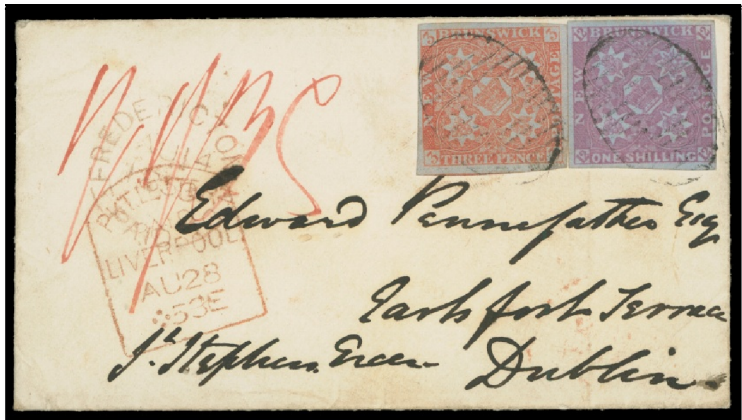 BRUNSWICK
NEW
POSTAGE
THREE PENCE
BRUNSWICK
NEW
POSTAGE
ONE SHILLING
FREDERICTON
LIVERPOOL
AU 28
53 E
Edward Pennefather Esq
Earlsfort Terrace
St. Stephens Green
Dublin